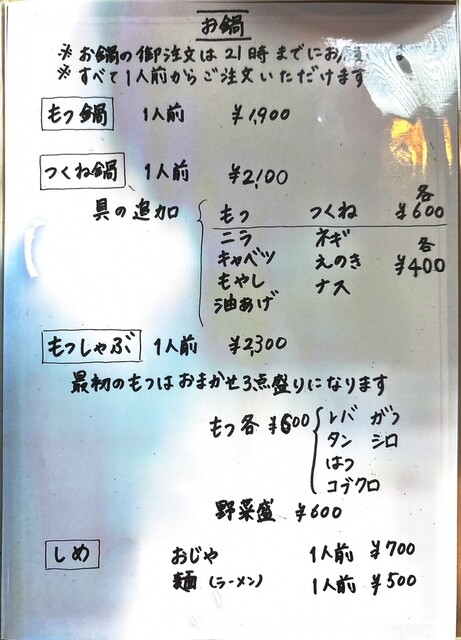 お鍋
※お鍋の御注文は21時までにお
※すべて1人前からご注文いただけます
もつ鍋 1人前 ¥1,900
つくね鍋 1人前 ¥2,100
具の追加 もつ つくね 各¥600
ニラ ネギ 各¥400
キャベツ えのき
もやし ナス
油あげ
もつしゃぶ 1人前 ¥2,300
最初のもつはおまかせ3点盛りになります
もつ各¥600 レバ ガツ
タン シロ
はつ
コブクロ
野菜盛 ¥600
しめ おじや 1人前 ¥700
麺(ラーメン) 1人前 ¥500